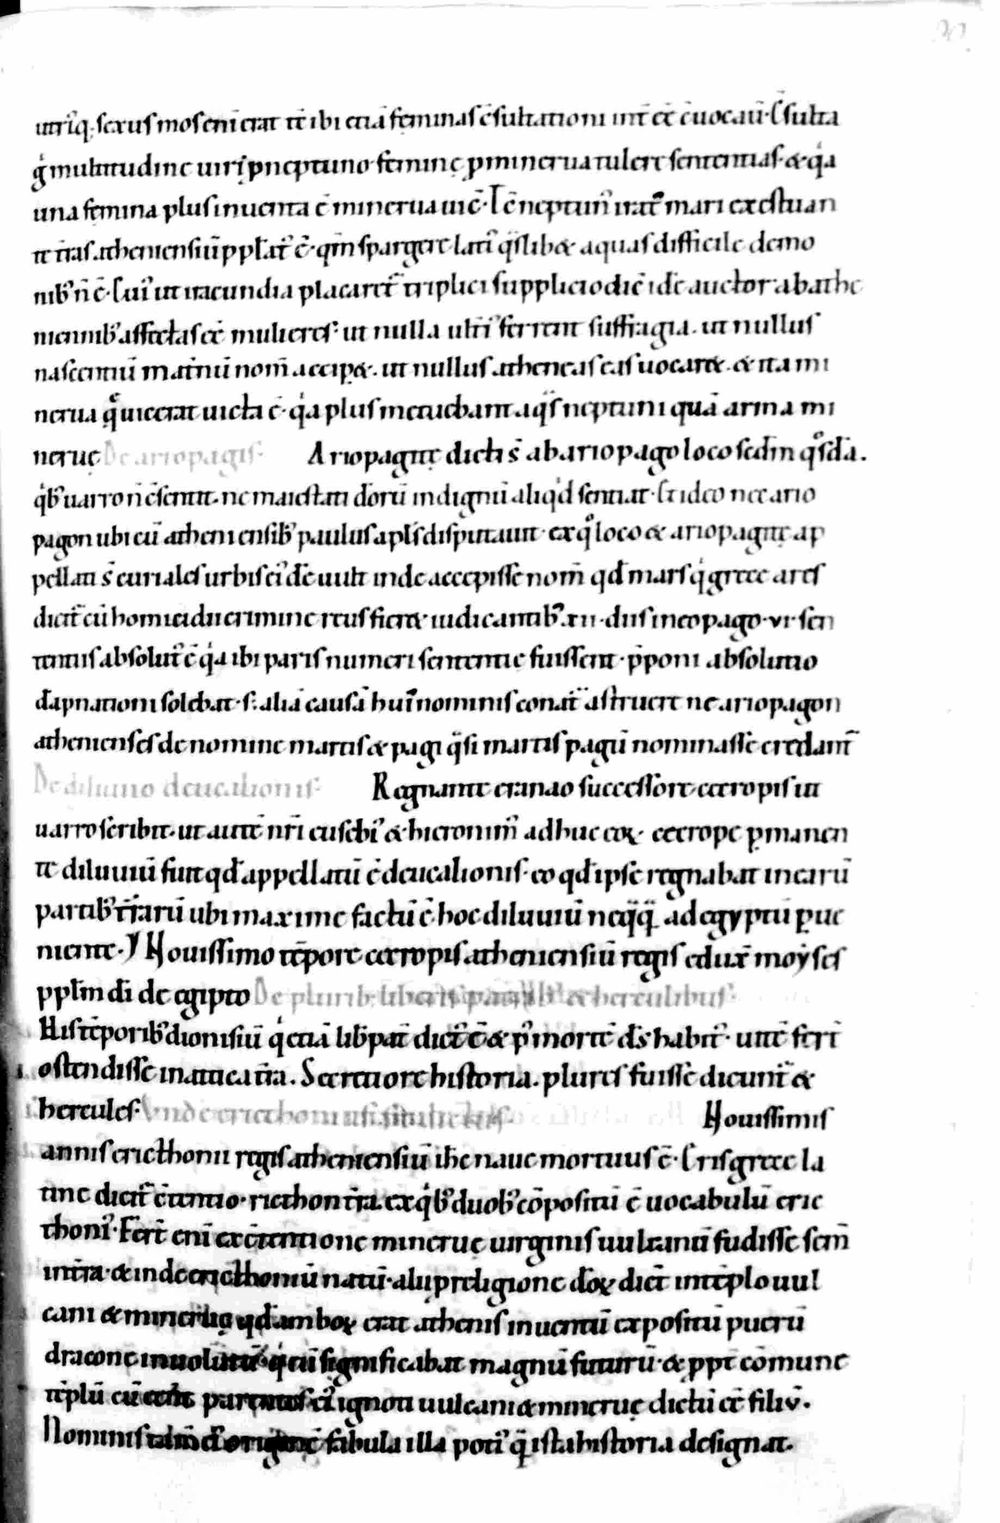 utriq; sexus mos eni erat tc ibi etiā feminas ɔsultationi intēē ɔuocauī. Ɔsulta
g̊ multitudine uiri p neptuno femine p minerua tulere sententias. & q̇a
una femina plus inuenta ē minerua uicī. Tc̄ neptun' irat' mari exestuan
te t̄ras atheniensiū pplat' ē. qm̄ spargere lati' q̄slib& aquas difficile demo
nib' n̄ ē. Cui' ut iracundia placaret᷑ triplici supplicio dic̄ idē auctor ab athe
niensib' affectas ēē mulieres. ut nulla ult̄i' ferrent suffragia. ut nullus
nascentiū mat̄nū nom̄ accip&. ut nullus atheneas eas uocar&. & ita mi
nerua q̄ uicerat uicta ē. q̇a plus metuebant aq̄s neptuni quā arma mi
neruę De ariopagis. Ariopagitę dicti s̄ ab ariopago loco sedm̄ q°sdā.
q̇b' uarro n̄ ɔsentit. ne maiestati deorū indignū aliq̇d sentiat. Et ideo nec ario
pagon ubi cū atheniensib' paulus apl̄s disputauit. ex q° loco & ariopagitę ap
pellati s̄ curiales urbis ei'dē uult inde accepisse nom̄ qd̄ mars q̇ grece ares
dicit᷑ cū homicidii crimine reus fier& iudicantib' .xii. diis in eo pago .vi. sen
tentiis absolut' ē q̇a ibi paris numeri sententie fuissent. p̄poni absolutio
dāpnationi solebat. s; aliā causā hui' nominis conat᷑ astruere ne ariopagon
athenienses de nomine martis & pagi q̄si martis pagū nominasse credant᷑
De diluuio deucalionis. Regnante cranao successore cecropis ut
uarro scribit. ut autē nr̄i eusebi' & hieronim' adhuc eoꝝ cecrope pmanen
te diluuiū fuit qd̄ appellatū ē deucalionis. eo qd̄ ipse regnabat in earū
partib' t̄rarū ubi maxime factū ē. hoc diluuiū neq̄q̄ ad egyptū pue
niente. Nouissimo tēpore cecropis atheniensiū regis edux̄ moyses
pplm̄ di de egipto De plurib; liberis patrib' & herculibus.
His tēporib' dionisiū q̇ etiā lib pat̄ dict' ē & p' mortē ds̄ habit'. uitē fert᷑
ostendisse in attica t̄ra. Secretiore historia. plures fuisse dicunt᷑ &
hercules. Unde ericthonius Nouissimis
annis ericthonii regis atheniensiū ihc naue mortuus ē. Eris grece la
tine dicit᷑ ɔtentio. ricthon t̄ra. ex q̇b' duob' cōpositū ē uocabulū eric
thoni'. Fert᷑ eni ex ɔtentione mineruę uirginis uulcanū fudisse sem̄
in t̄ra. & inde ericthoniū natū. alii p religione deoꝝ dic̄t in tēplo uul
cani & mineruę qd̄ amboꝝ erat athenis inuentū expositū puerū
dracone inuolutū. q̇ eū significabat magnū futurū. & ppt̄ cōmune
tēplū cū ēēnt parentes ei' ignoti uulcani & mineruę dictū ēē filiū.
Nominis tam̄ ei' originē fabula illa poti' q̄ ista historia designat.